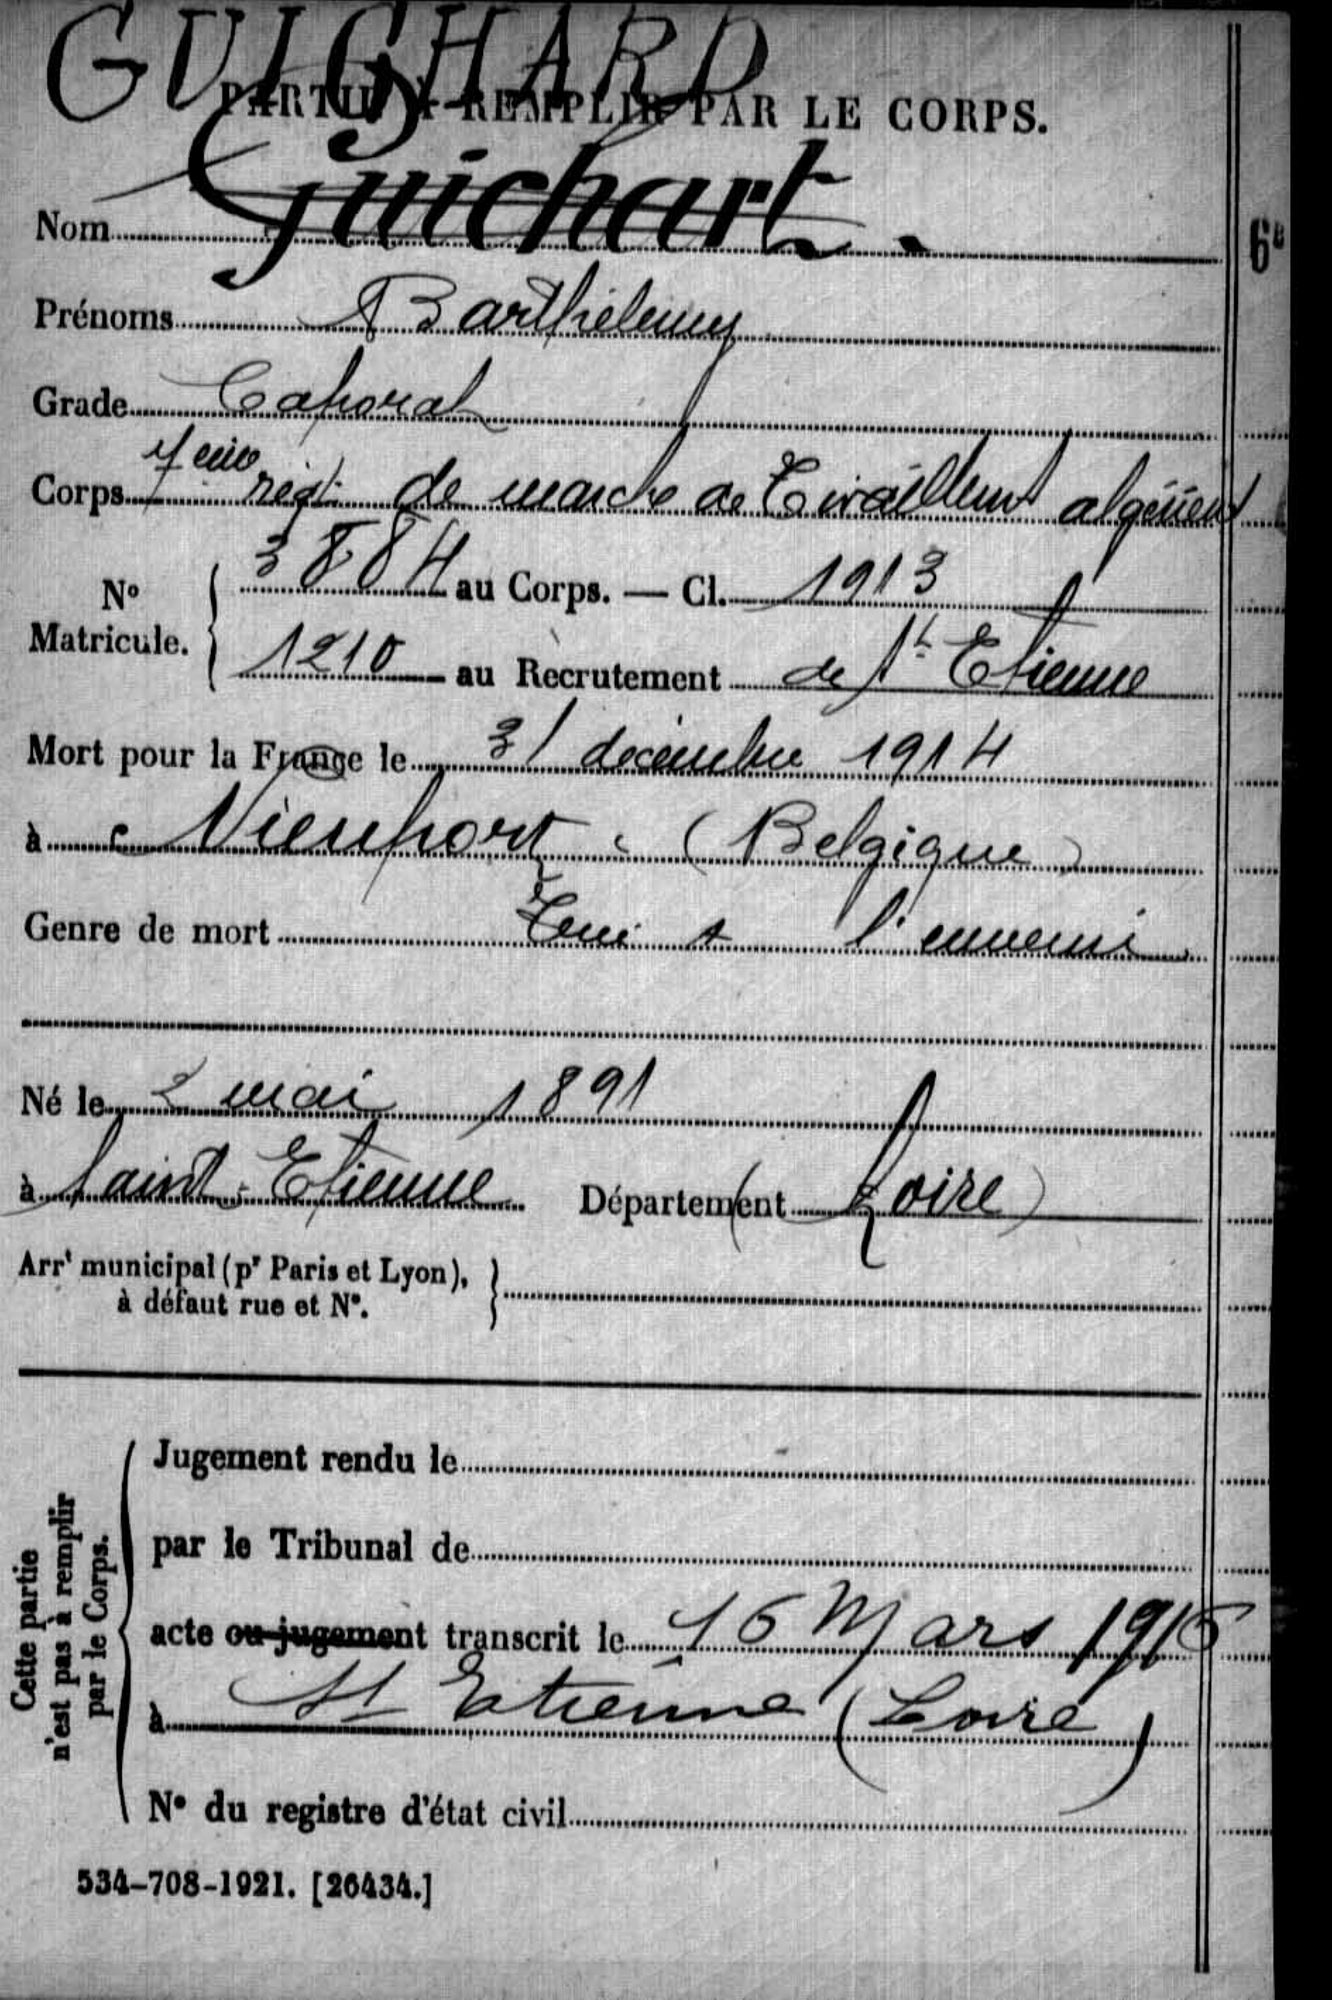 GUICHARD
PARTIE À REMPLIR PAR LE CORPS.
Nom Guichart.
Prénoms Barthélemy
Grade Caporal
Corps 7eme régt de marche de Tirailleurs algériens
N° Matricule. 3884 au Corps. — Cl. 1913
1210 au Recrutement de St Etienne
Mort pour la France le 31 décembre 1914
à Nieuport (Belgique)
Genre de mort Tué à l'ennemi
Né le 2 mai 1891
à Saint-Etienne Département (Loire)
Arrt municipal (pr Paris et Lyon),
à défaut rue et N°.
Cette partie
n'est pas à remplir
par le Corps.
Jugement rendu le
par le Tribunal de
acte ou jugement transcrit le 16 Mars 1916
à St Etienne (Loire)
N° du registre d'état civil
534-708-1921. [26434.]